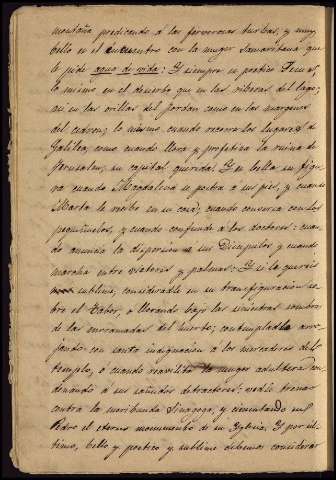 montaña predicando á las fervorosas turbas, y muy
bello en el encuentro con la muger Samaritana que
le pide agua de vida: Y siempre es poetico Jesus,
lo mismo en el desierto que en las riberas del lago;
asi en las orillas del Jordan como en las margenes
del cedron; lo mismo cuando recorre los lugares de
Galilea, como cuando llora y profetiza la ruina de
Jerusalen, su capital querida: Y es bella su figu-
ra cuando Magdalena se postra á sus pies, y cuando
Marta le recibe en su casa; cuando conversa con los
pequeñuelos, y cuando confunde á los doctores: cuan-
do anuncia la dispersion á sus Discipulos y cuando
marcha entre vitores y palmas: Y si la quereis
sublime, consideradle en su transfiguracion so-
bre el Tabor, ó llorando bajo las siniestras sombras
de las enrramadas del huerto; contempladle arro-
jando con santa indignacion á los mercaderes del
templo, ó cuando reavilita la muger adultera con-
denando á sus sañudos detractores: vedle tronar
contra la moribunda Sinagoga, y cimentando en
Pedro el eterno monumento de su Yglesia. Y por ul-
timo, bello y poetico y sublime debemos considerar